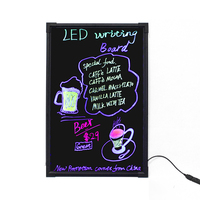 LED writing
Board
Special food
CAFFÈ LATTE
CAFFÈ MOCHA
CARMEL MACCHIATO
VANILLA LATTE
MILK WITH TEA
Beer
$29
New Promotion comes from China